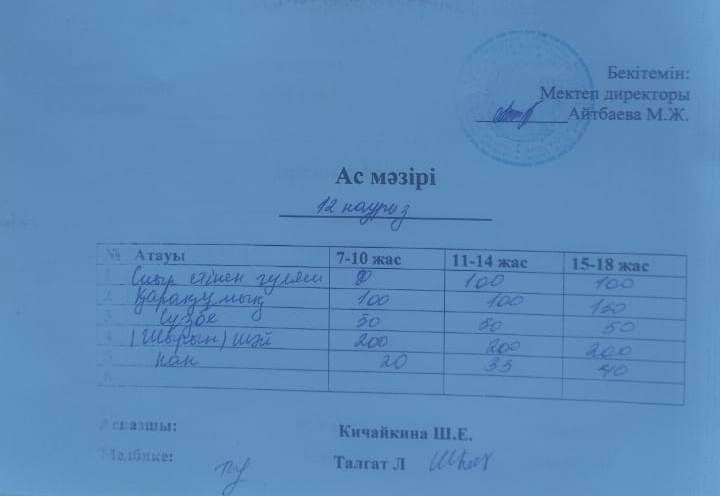 Бекітемін:
Мектеп директоры
Айтбаева М.Ж.
Ас мәзірі
12 наурыз
№ Атауы 7-10 жас 11-14 жас 15-18 жас
1 Сиыр етінен гуляш 100 100
2. Қарақұмық 100 100 150
3 Сүзбе 50 50 50
4. (Шырын) шәй 200 200 200
5 нан 20 35 40
6.
Асказшы: Кичайкина Ш.Е.
Медбике: Талгат Л